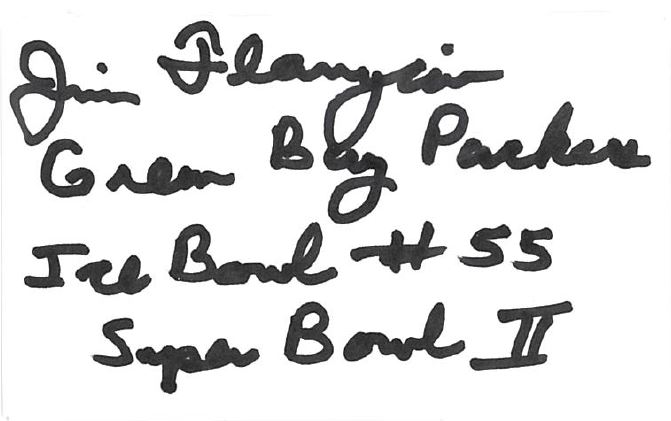 Jim Flanigan
Green Bay Packers
Ice Bowl # 55
Super Bowl II